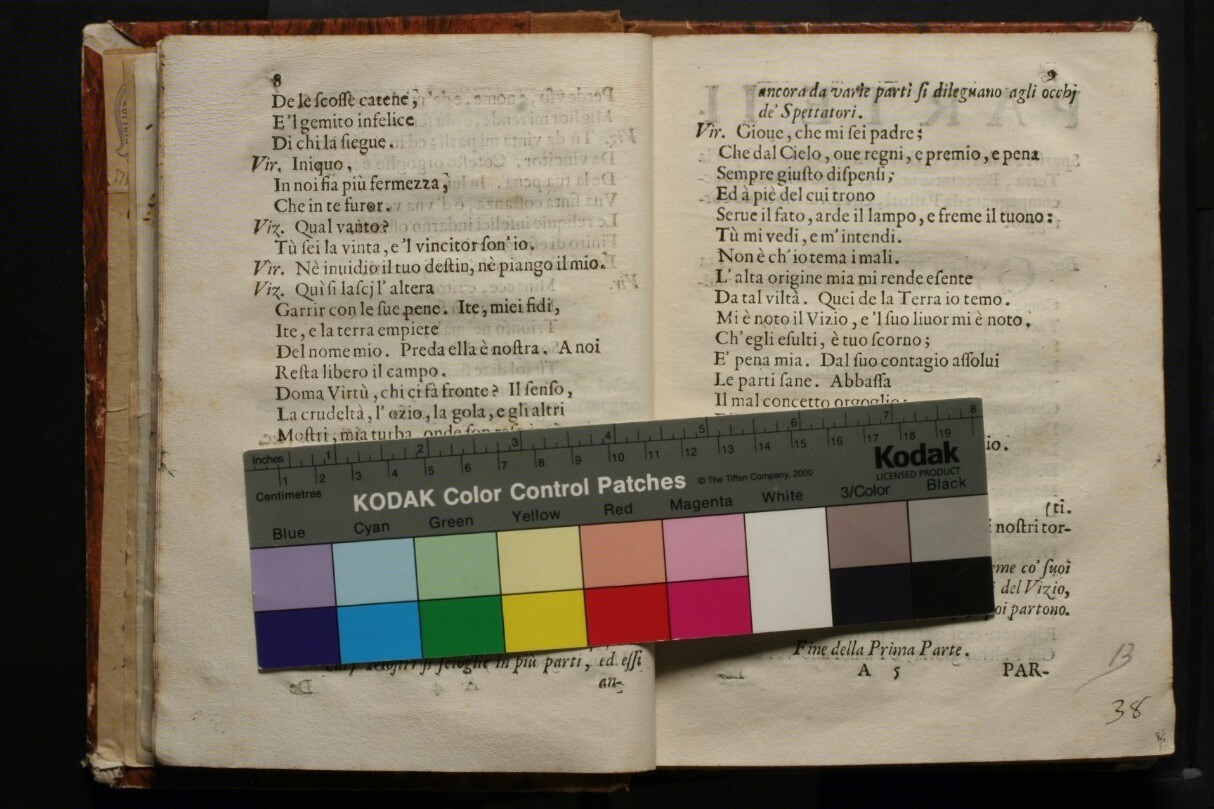 8
De le ſcoſſe catene;
E'l gemito infelice
Di chi la ſiegue.
Vir. Iniquo,
In noi ſia più fermezza,
Che in te furor.
Viz. Qual vanto?
Tù ſei la vinta, e 'l vincitor ſon' io.
Vir. Nè inuidio il tuo deſtin, nè piango il mio.
Viz. Quì ſi laſcj l' altera
Garrir con le ſue pene. Ite, miei fidi,
Ite, e la terra empiete
Del nome mio. Preda ella è noſtra. A noi
Reſta libero il campo.
Doma Virtù, chi ci fà fronte? Il ſenſo,
La crudeltà, l' ozio, la gola, e gli altri
Moſtri, mia turba, onde ſon
ſi ſcioglie in più parti, ed eſſi
an-
9
ancora da varie parti ſi dileguano agli occhj
de' Spettatori.
Vir. Gioue, che mi ſei padre;
Che dal Cielo, oue regni, e premio, e pena
Sempre giuſto diſpenſi;
Ed à piè del cui trono
Serue il fato, arde il lampo, e freme il tuono:
Tù mi vedi, e m' intendi.
Non è ch' io tema i mali.
L' alta origine mia mi rende eſente
Da tal viltà. Quei de la Terra io temo.
Mi è noto il Vizio, e 'l ſuo liuor mi è noto.
Ch' egli eſulti, è tuo ſcorno;
E' pena mia. Dal ſuo contagio aſſolui
Le parti ſane. Abbaſſa
Il mal concetto orgoglio:
io.
ſti.
i noſtri tor-
eme co' ſuoi
del Vizio,
oi partono.
Fine della Prima Parte.
A 5 PAR-
13
38
Inches 1 2 3 4 5 6 7 8
1 2 3 4 5 6 7 8 9 10 11 12 13 14 15 16 17 18 19
Centimetres
KODAK Color Control Patches © The Tiffen Company, 2000 Kodak
LICENSED PRODUCT
Blue Cyan Green Yellow Red Magenta White 3/Color Black